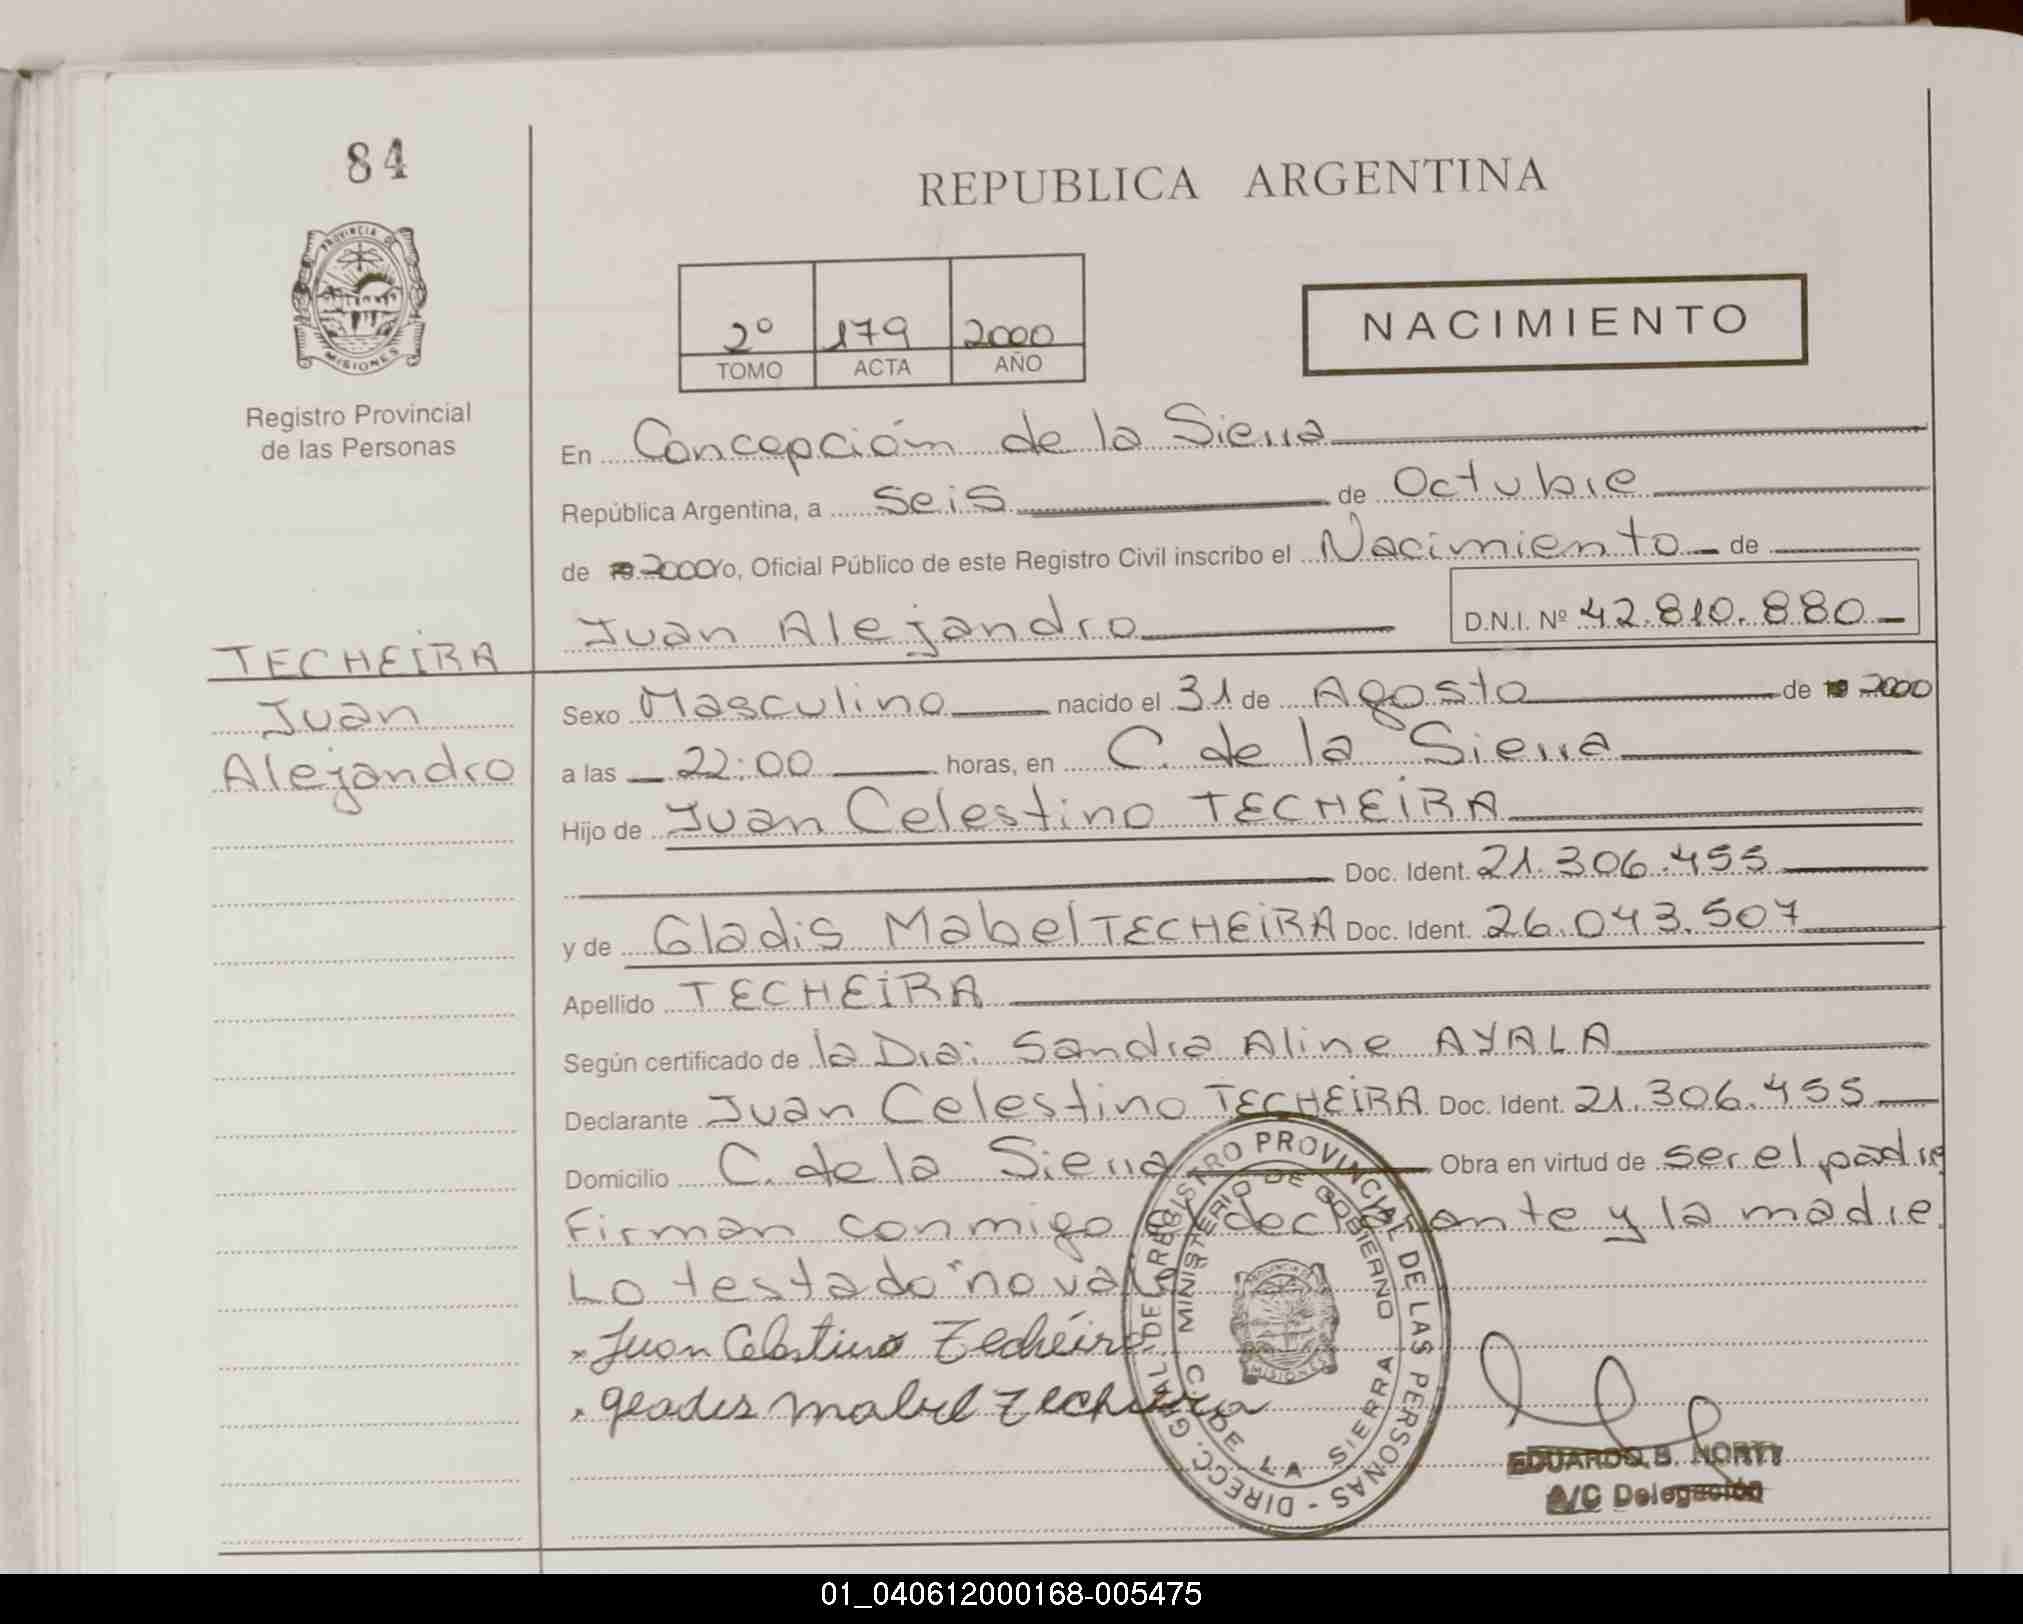 84
REPUBLICA ARGENTINA
PROVINCIA DE
MISIONES
Registro Provincial
de las Personas
2º 179 2000
TOMO ACTA AÑO
NACIMIENTO
En Concepción de la Sierra
República Argentina, a seis de Octubre
de 2000 o, Oficial Público de este Registro Civil inscribo el Nacimiento de
Juan Alejandro D.N.I. Nº 42.810.880
TECHEIRA
Juan
Alejandro
Sexo Masculino nacido el 31 de Agosto de 2000
a las 22:00 horas, en C. de la Sierra
Hijo de Juan Celestino TECHEIRA
Doc. Ident. 21.306.455
y de Gladis Mabel TECHEIRA Doc. Ident. 26.043.507
Apellido TECHEIRA
Según certificado de la Dra: Sandra Aline AYALA
Declarante Juan Celestino TECHEIRA Doc. Ident. 21.306.455
Domicilio C. de la Sierra Obra en virtud de ser el padre
Firman conmigo declarante y la madre.
Lo testado "no vale
Juan Celestino Techéira
gladis mabel Techeira
DIRECC. GRAL DE REGISTRO PROVINCIAL DE LAS PERSONAS
MINISTERIO DE GOBIERNO
C. DE LA SIERRA
MISIONES
EDUARDO B. NORTY
A/C Delegación
01_040612000168-005475